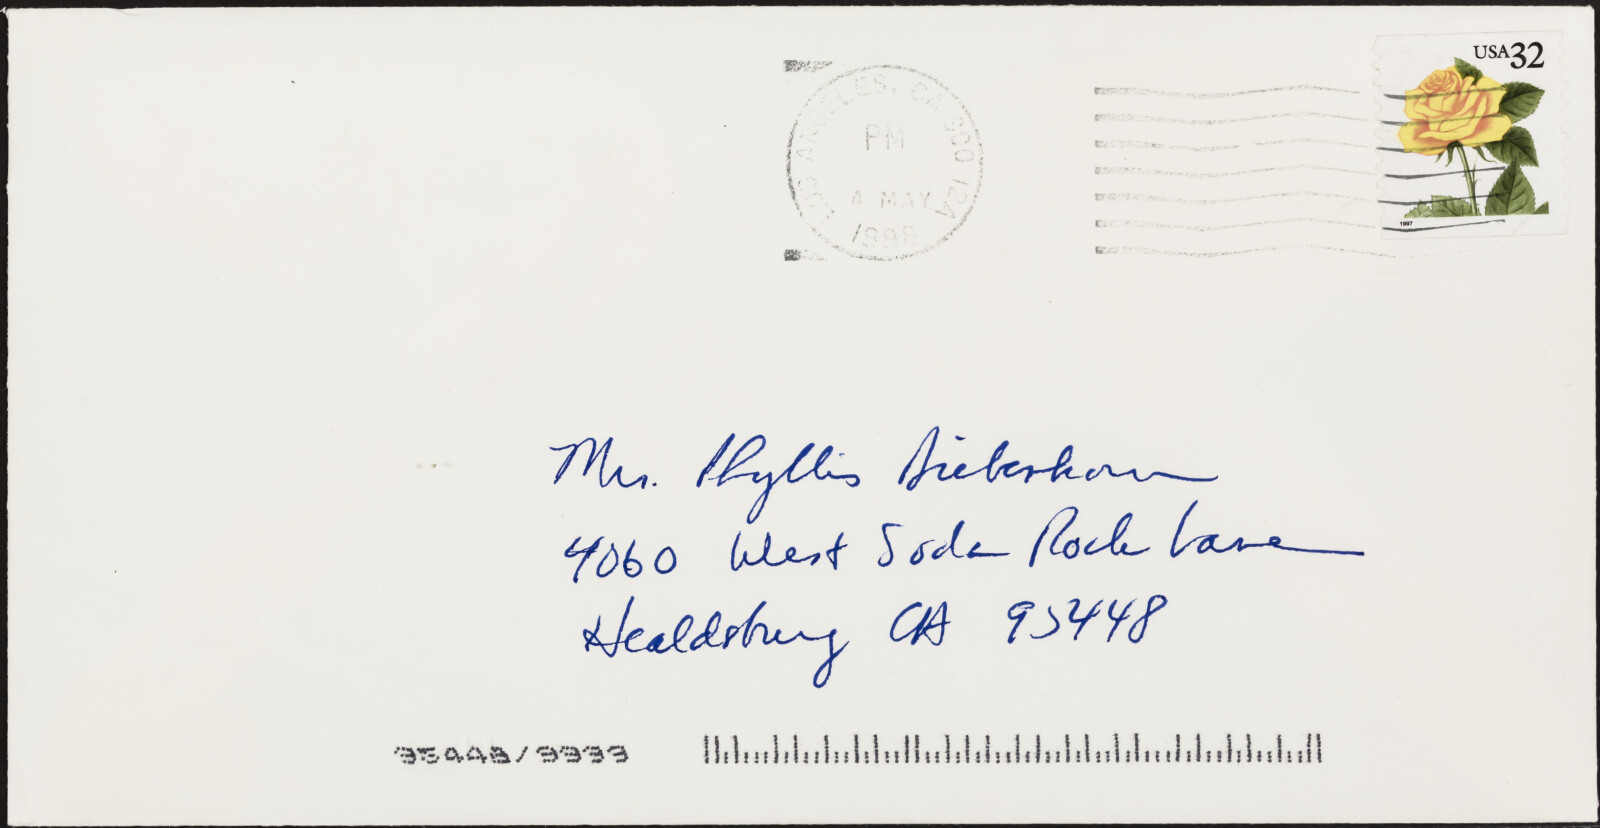 USA 32
LOS ANGELES, CA 900 12A
PM
4 MAY
1998
1997
Mrs. Phyllis Bieberkorn
4060 West Soda Rock Lane
Healdsburg CA 95448
95448/9999